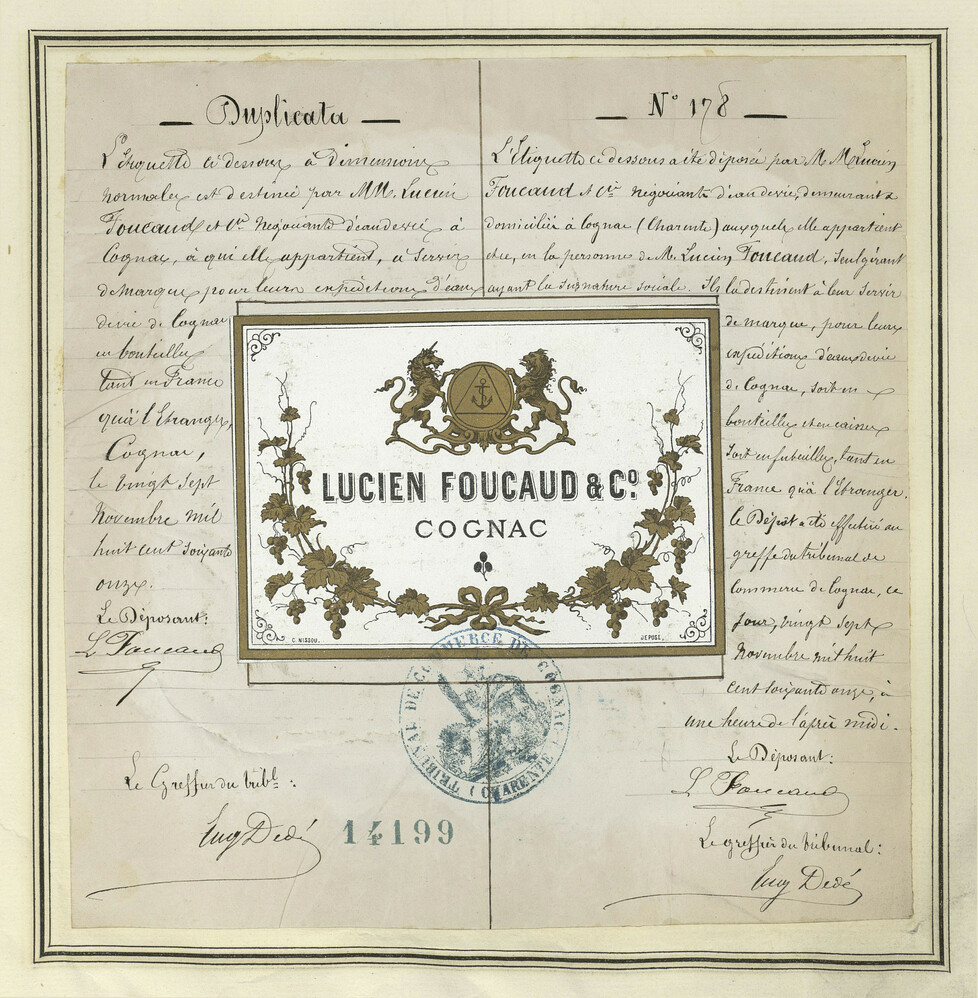 Duplicata
L'Etiquette ci dessous à Dimensions
normales est destinée par MM. Lucien
Foucaud et Cie Négociants d'eau de vie à
Cognac, à qui elle appartient, à servir
de marque pour leurs expéditions d'eaux
de vie de Cognac
en bouteilles
tant en France
qu'à l'Etranger,
Cognac,
le vingt sept
Novembre mil
huit cent soixante
onze.
Le Déposant:
L Foucaud
Le Greffier du tribl:
Eug Dedé
14199
N° 178
L'Etiquette ci dessous a été déposée par M. M. Lucien
Foucaud et Cie Négociants d'eau de vie, demeurant &
domiciliés à Cognac (Charente) auxquels elle appartient
et ce, en la personne de M. Lucien Foucaud, seul gérant
ayant la signature sociale. Ils la destinent à leur servir
de marque, pour leurs
expéditions d'eaux de vie
de Cognac, soit en
bouteilles et en caisses
soit en futailles, tant en
France qu'à l'Etranger.
Le Dépôt a été effectué au
greffe du tribunal de
Commerce de Cognac, ce
jour, vingt sept
Novembre mil huit
cent soixante onze, à
une heure de l'après midi.
Le Déposant:
L Foucaud
Le greffier du tribunal:
Eug Dedé
LUCIEN FOUCAUD & Co.
COGNAC
C. NISSOU.
DEPOSE.
TRIBUNAL DE COMMERCE DE COGNAC (CHARENTE)